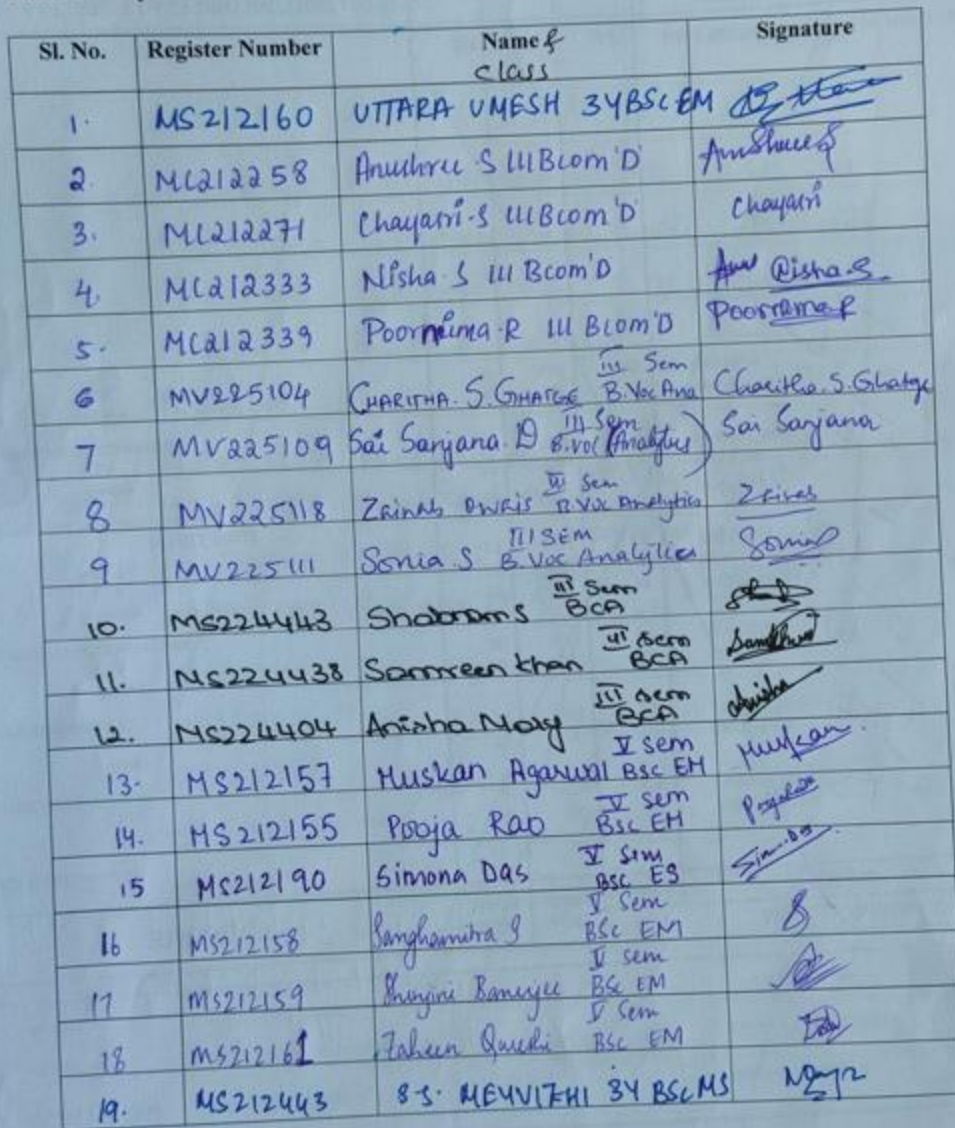 Sl. No. Register Number Name & Signature
class
1. MS212160 UTTARA UMESH 3YBSC EM
2. MC212258 Anushree S III BCom 'D' Anushree S
3. MC212271 Chayasri-S III BCom 'D' Chayasri
4. MC212333 Nisha S III Bcom 'D' Nisha.S
5. MC212339 Poornima R III BCom 'D Poornima R
III Sem
6 MV225104 CHARITHA. S. GHATGE B.Voc Ana Charitha. S. Ghatge
III Sem
7 MV225109 Sai Sanjana. D B.Voc (Analytics) Sai Sanjana
III Sem
8 MV225118 Zainab Owais B.Voc Analytics Zainab
III SEM
9 MV225111 Sonia S B.Voc Analytics Sonia
III Sem
10. MS224443 Shabnam S BCA
III Sem
11. MS224438 Samreen khan BCA
III Sem
12. MS224404 Anisha Mary BCA Anisha
V sem
13. MS212157 Muskan Agarwal BSC EM Muskan
V sem
14. MS212155 Pooja Rao BSC EM
V Sem
15 MS212190 Simona Das BSC ES
V Sem
16 MS212158 Sanghamitra S BSC EM S
V sem
17 MS212159 Banerjee BSC EM
V Sem
18 MS212161 Zaheen BSC EM
19. MS212443 S. MEYVIZHI 3Y BSC MS